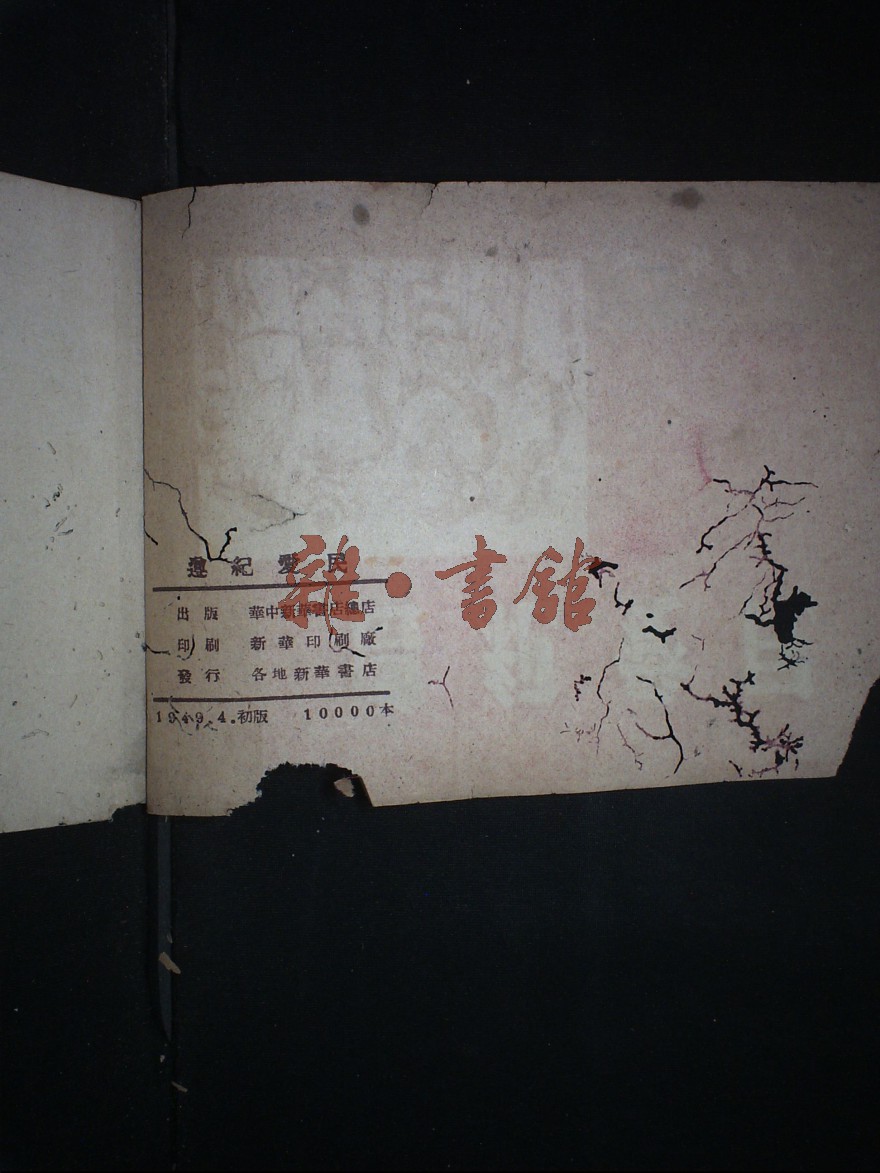 遵紀愛民
雜·書館
出版 華中新華書店總店
印刷 新華印刷廠
發行 各地新華書店
1949.4.初版 10000本